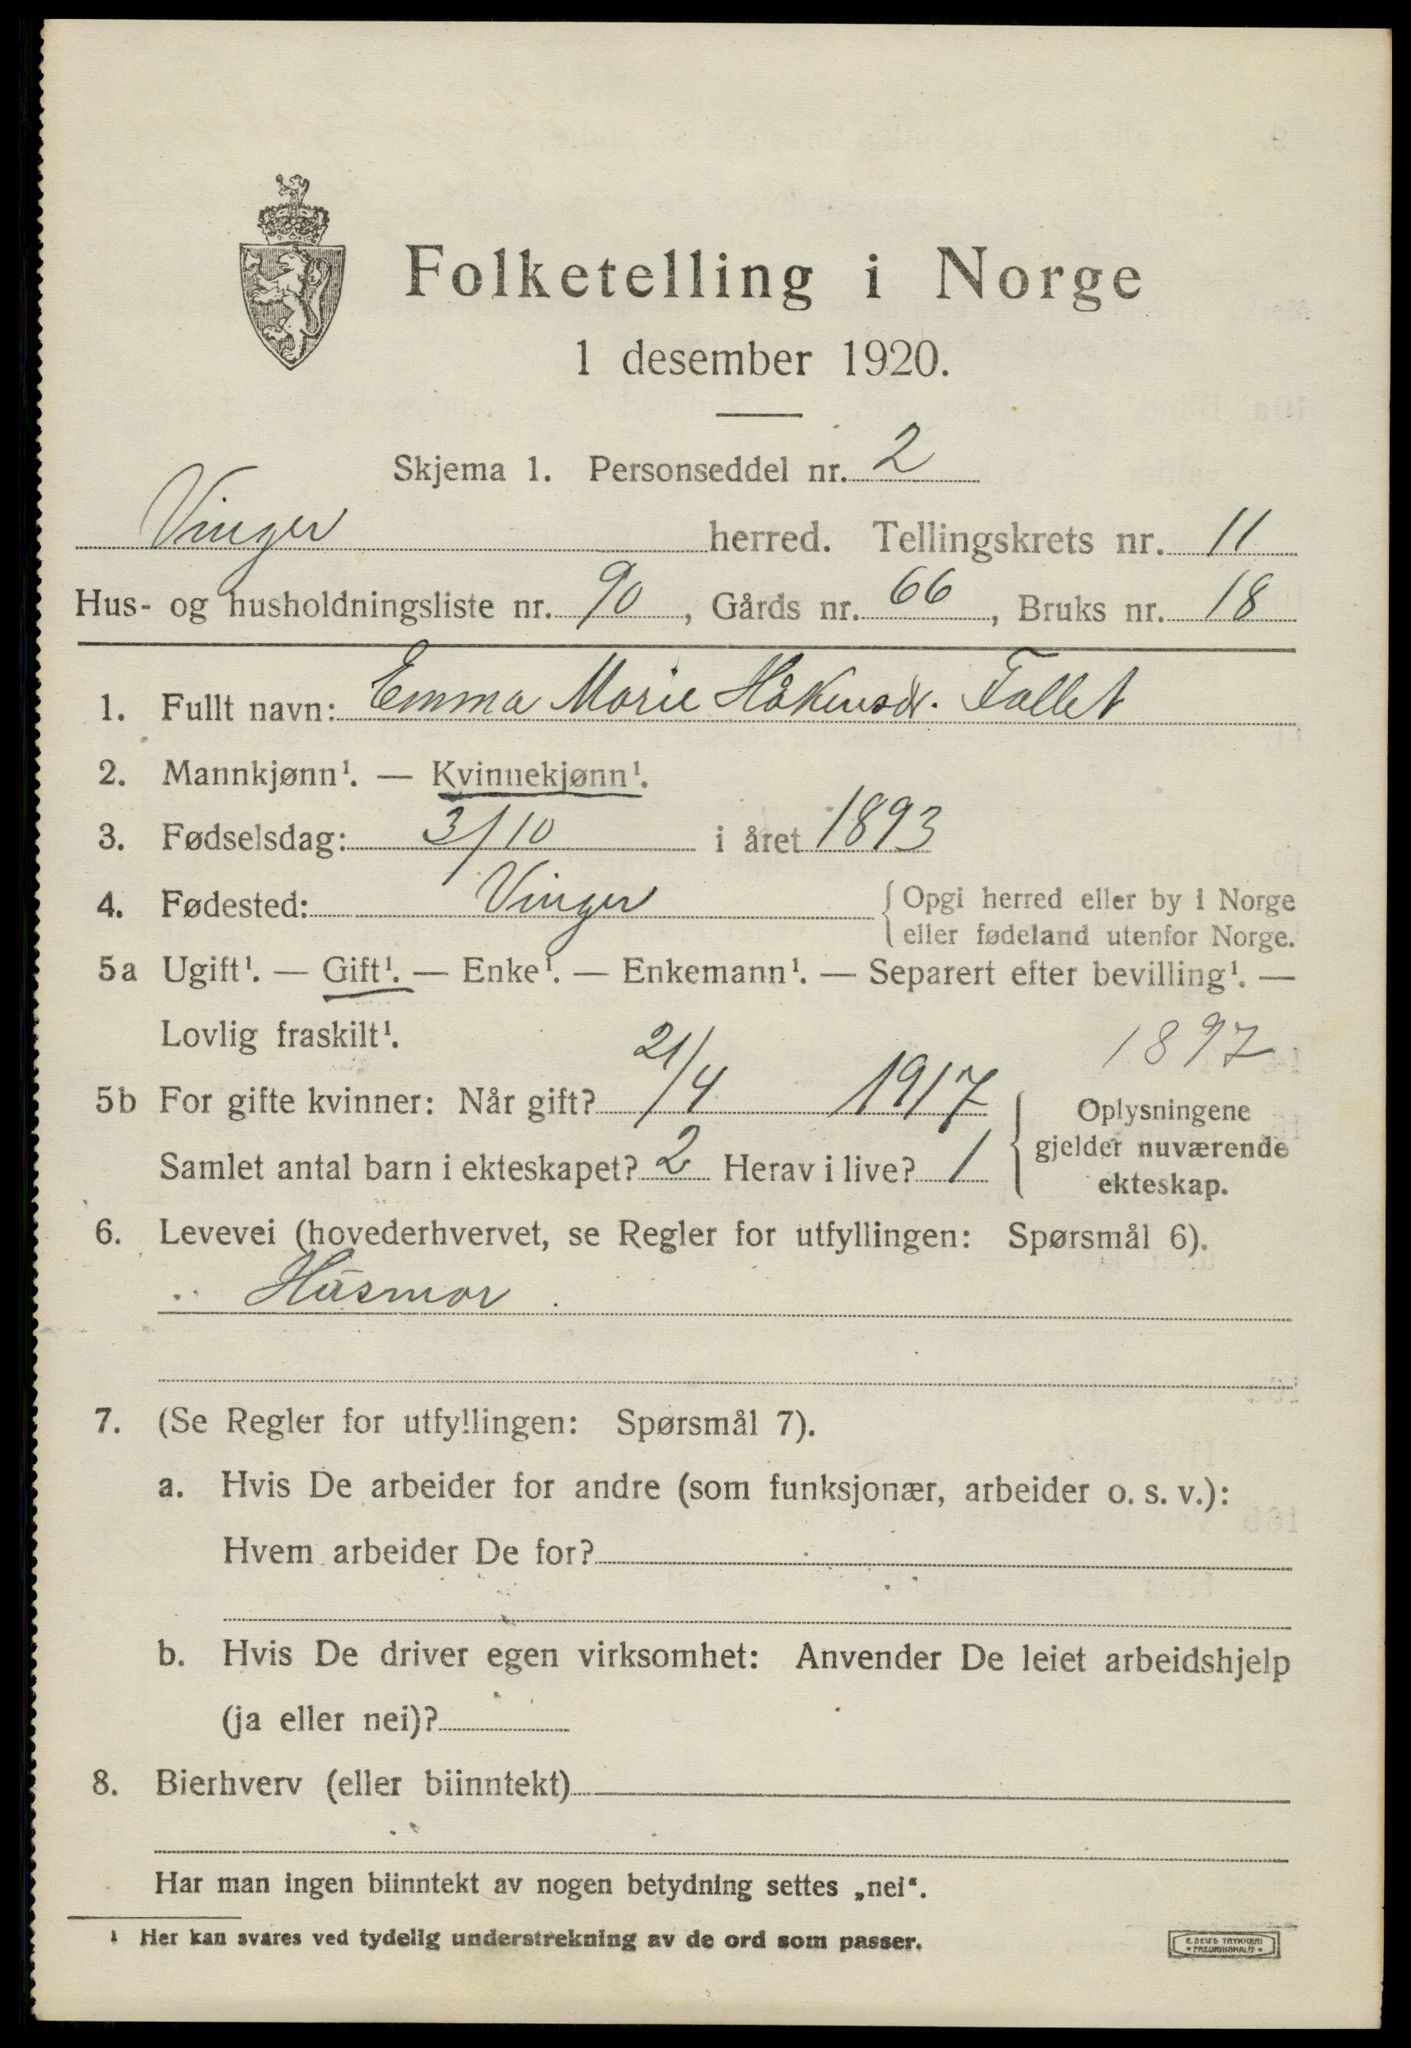 Folketelling i Norge
1 desember 1920.
Skjema 1. Personseddel nr. 2
Vinger herred. Tellingskrets nr. 11
Hus- og husholdningsliste nr. 90, Gårds nr. 66, Bruks nr. 18
1. Fullt navn: Emma Marie Håkensdr. Fallet
2. Mannkjønn¹. — Kvinnekjønn¹.
3. Fødselsdag: 3/10 i året 1893
4. Fødested: Vinger {Opgi herred eller by i Norge
eller fødeland utenfor Norge.
5a Ugift¹. — Gift¹. — Enke¹. — Enkemann¹. — Separert efter bevilling¹. —
Lovlig fraskilt¹. 1897
5b For gifte kvinner: Når gift? 21/4 1917 { Oplysningene
gjelder nuværende
Samlet antal barn i ekteskapet? 2 Herav i live? 1
ekteskap.
6. Levevei (hovederhvervet, se Regler for utfyllingen: Spørsmål 6).
Husmor
7. (Se Regler for utfyllingen: Spørsmål 7).
a. Hvis De arbeider for andre (som funksjonær, arbeider o. s. v.):
Hvem arbeider De for?
b. Hvis De driver egen virksomhet: Anvender De leiet arbeidshjelp
(ja eller nei)?
8. Bierhverv (eller biinntekt)
Har man ingen biinntekt av nogen betydning settes „nei“.
¹ Her kan svares ved tydelig understrekning av de ord som passer.
E. SEM'S TRYKKERI
• FREDRIKSHALD •